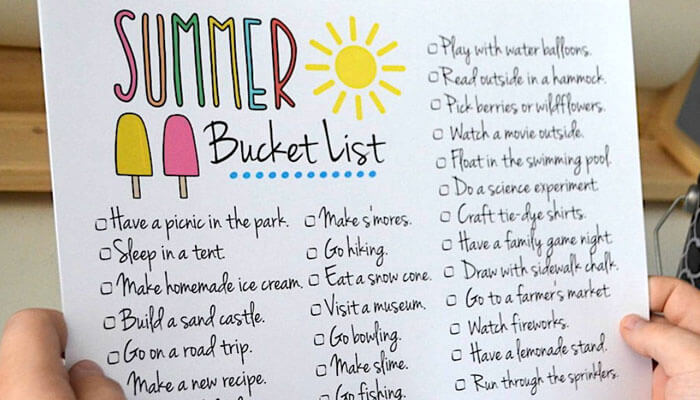 SUMMER
Bucket List
Have a picnic in the park.
Sleep in a tent.
Make homemade ice cream.
Build a sand castle.
Go on a road trip.
Make a new recipe.
Make s'mores.
Go hiking.
Eat a snow cone.
Visit a museum.
Go bowling.
Make slime.
Go fishing.
Play with water balloons.
Read outside in a hammock.
Pick berries or wildflowers.
Watch a movie outside.
Float in the swimming pool.
Do a science experiment
Craft tie-dye shirts.
Have a family game night
Draw with sidewalk chalk.
Go to a farmer's market
Watch fireworks.
Have a lemonade stand.
Run through the sprinklers.